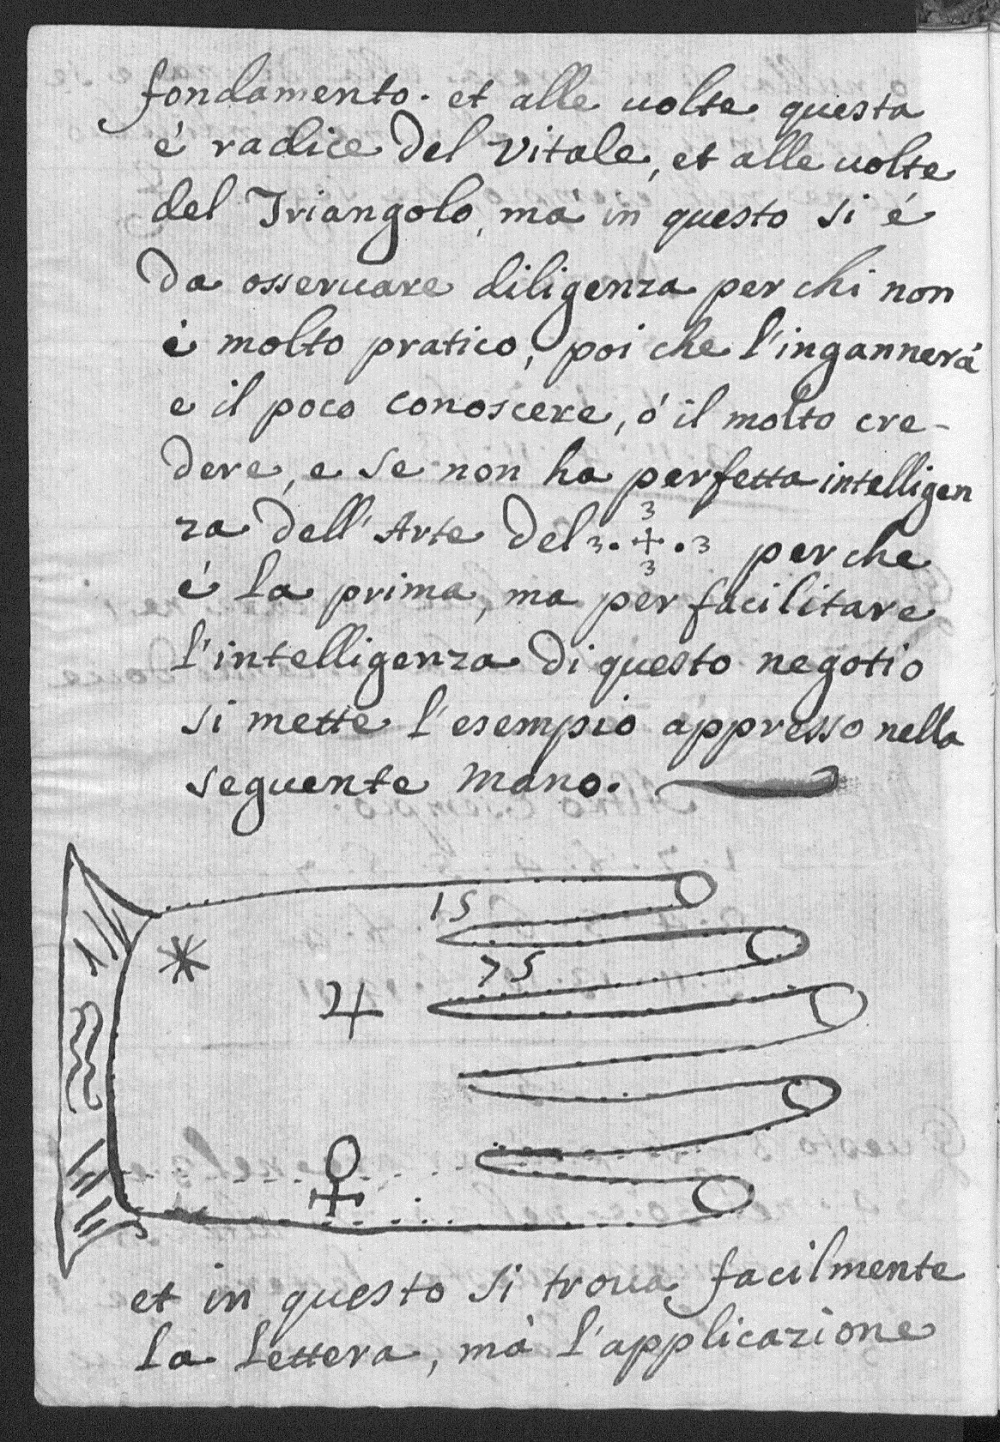 fondamento. et alle uolte questa
é radice del Vitale, et alle uolte
del Triangolo, mà in questo si é
da osseruare diligenza per chi non
é molto pratico, poi che l'ingannerá
e il poco conoscere, ó il molto cre-
dere, e se non ha perfetta intelligen
za dell'Arte del 3 . + . 3 perche
3
3
é la prima, ma per facilitare
l'intelligenza di questo negotio
si mette l'esempio appresso nella
seguente mano.
15
*
75
♃
♀
et in questo si troua facilmente
la lettera, mà l'applicazione